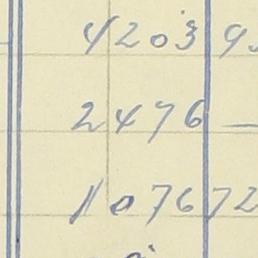 4203 9
2476 —
107672